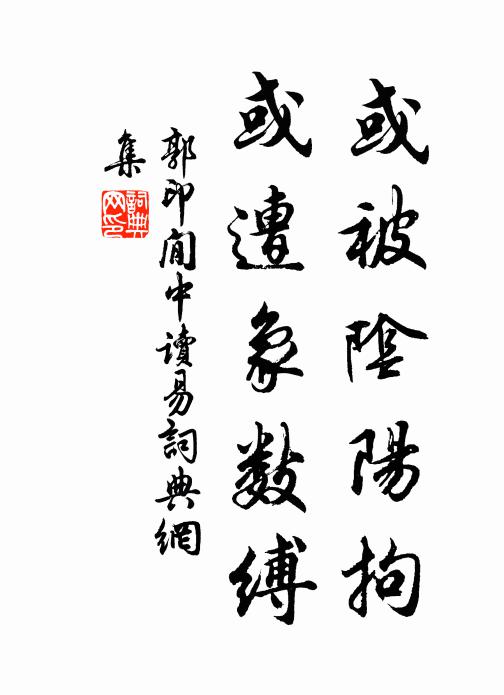 或被陰陽拘
或遭象數縛
郭印閒中讀易詞典網
集
詞典
网印